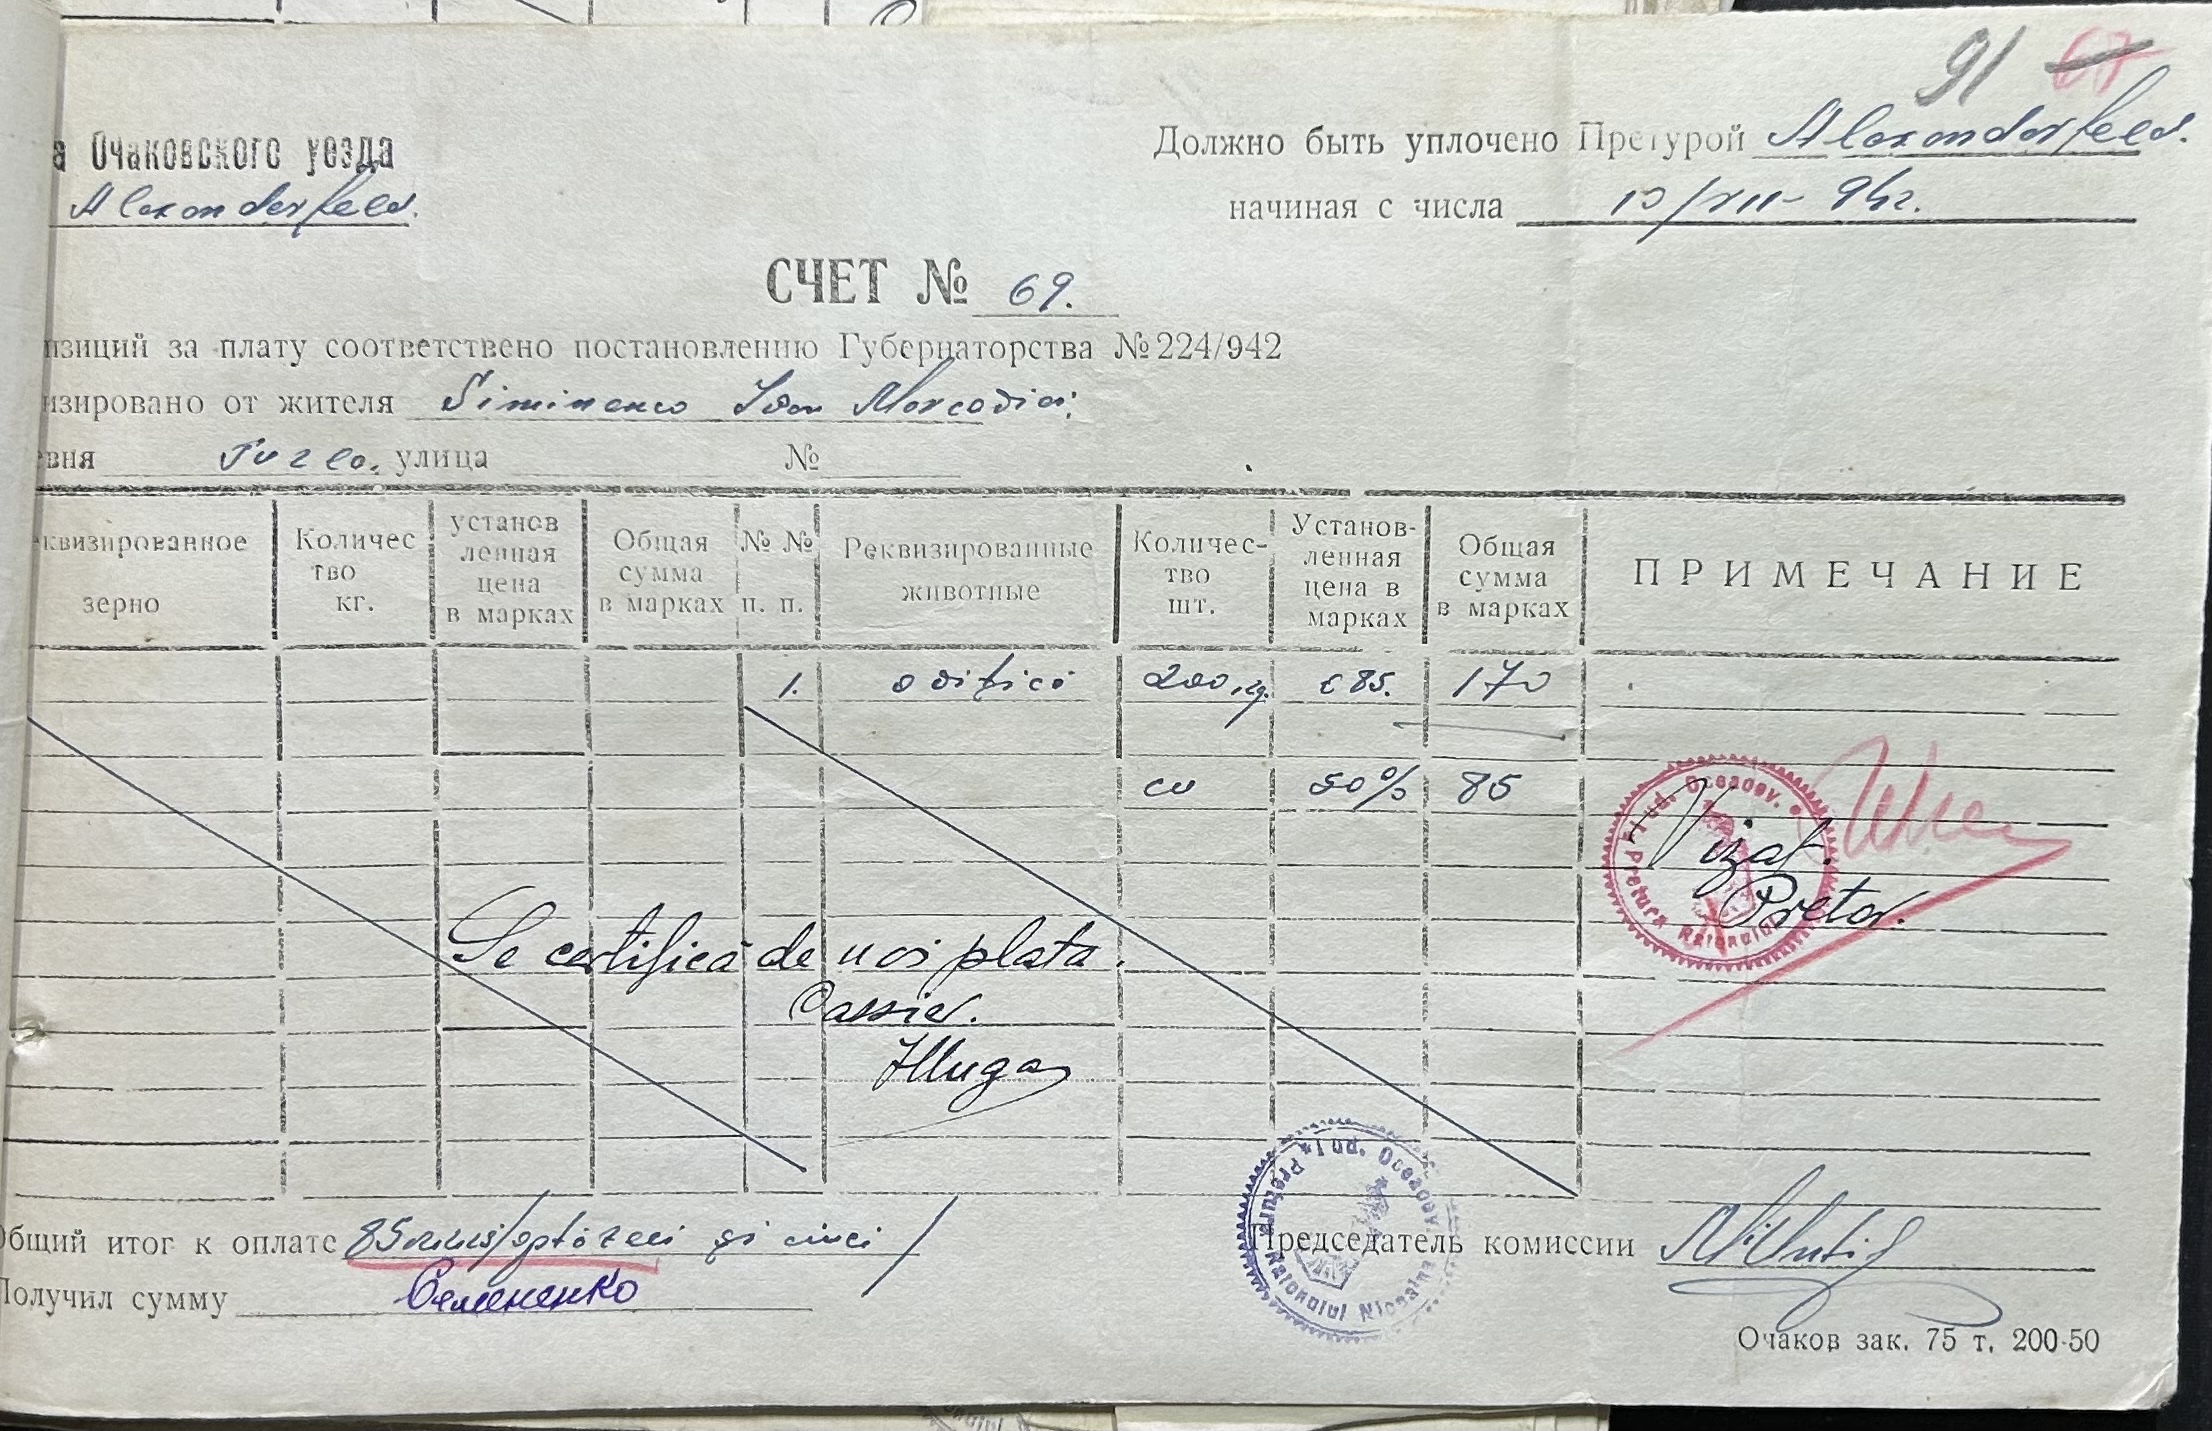 91 67
а Очаковского уезда
Alexanderfeld.
Должно быть уплочено Претурой Alexanderfeld.
начиная с числа 10/VII- 942.
СЧЕТ № 69.
изиций за плату соответствено постановлению Губернаторства №224/942
изировано от жителя Siminenco Ivan
евня улица №
еквизированное зерно
Количес тво кг.
установ ленная цена в марках
Общая сумма в марках
№ № п. п.
Реквизированные животные
Количес- тво шт.
Установ- ленная цена в марках
Общая сумма в марках
ПРИМЕЧАНИЕ
1. 200 kg. 85. 170
cu 50% 85
Pretura Raionului Jud. Oceacov
Vizat.
Pretor.
Se certifică de noi plata.
Cassier.
Общий итог к оплате 85 optzeci și cinci
Получил сумму Семененко
Pretura Raionului Jud. Oceacov
Председатель комиссии
Очаков зак. 75 т. 200-50